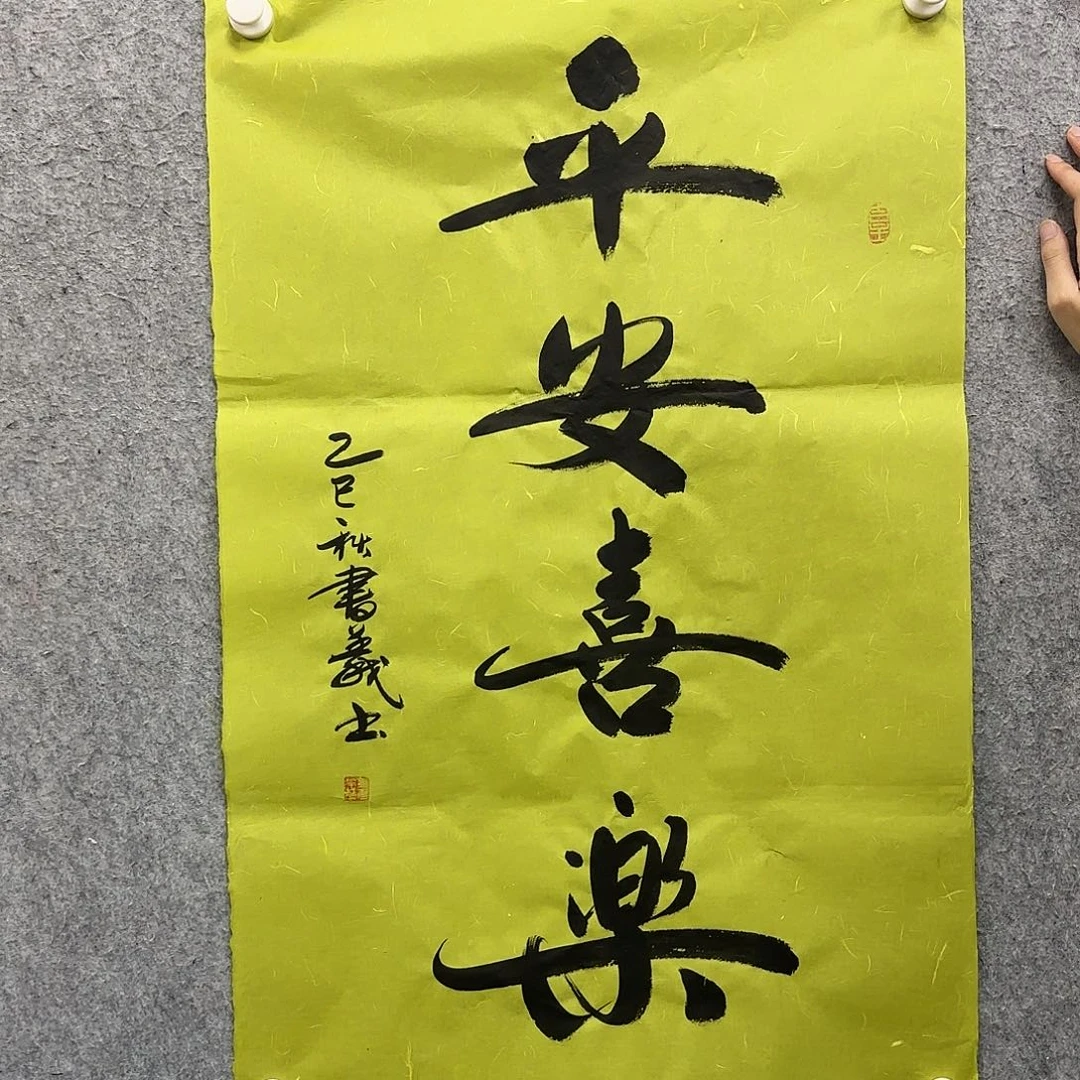 平安喜樂
乙巳秋書義出